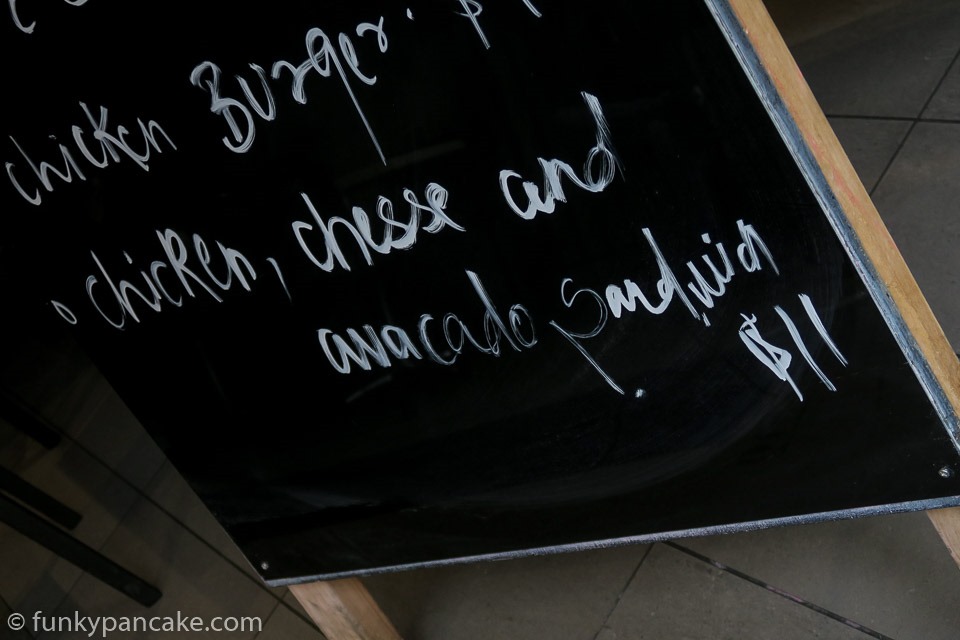 chicken Burger. $1
chicken, chesse and
avacado sandwich
$11
© funkypancake.com